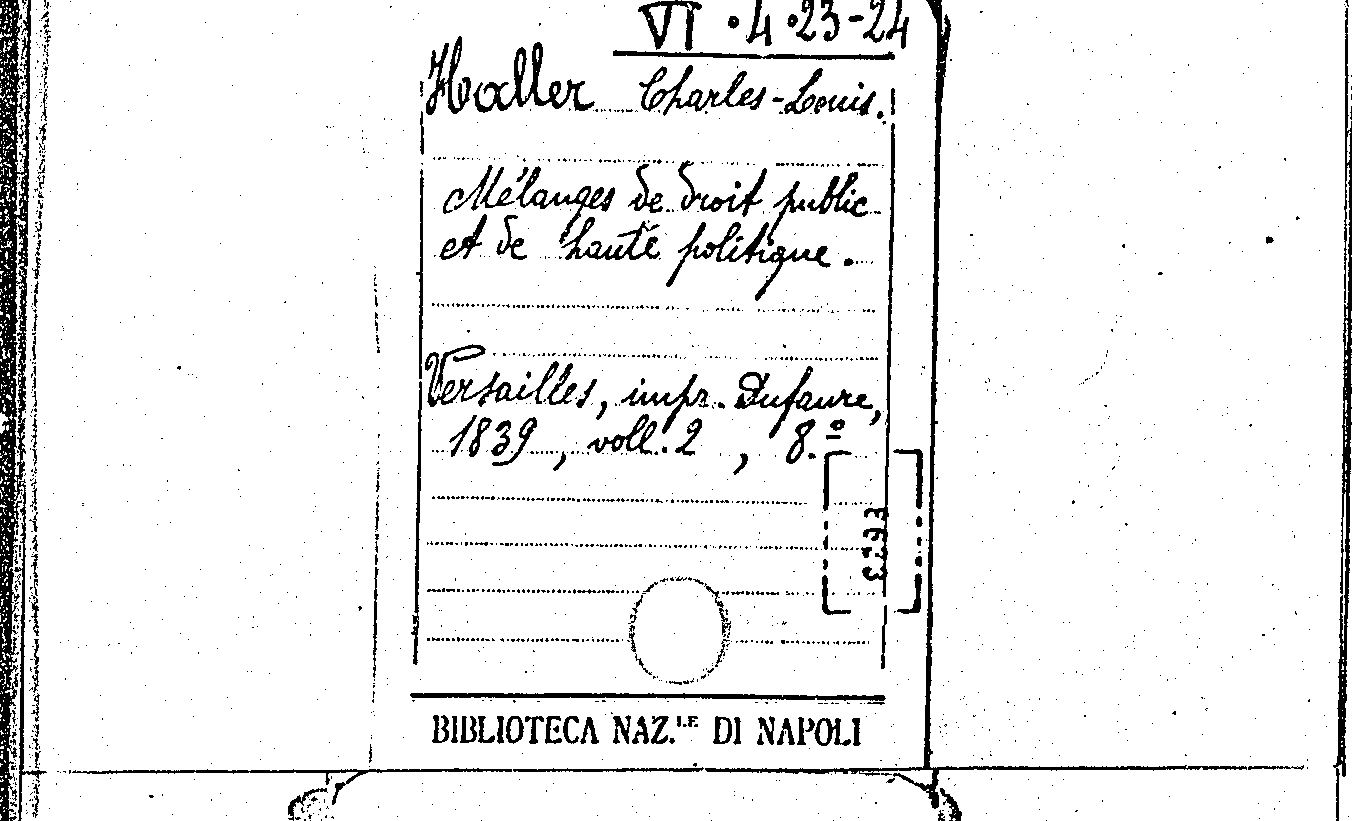 VI . 4 . 23-24
Haller Charles-Louis.
Mélanges de droit public
et de haute politique.
Versailles, impr. Dufaure,
1839, voll. 2, 8.º
BIBLIOTECA NAZ.LE DI NAPOLI